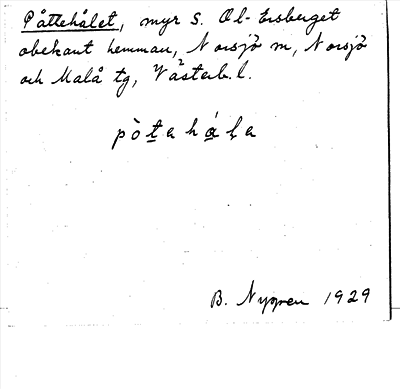 Påttehålet, myr S. Ol-Ersberget
obekant hemman, Norsjö sn, Norsjö
och Malå tg, Västerb. l.
pòtahála
B. Nygren 1929